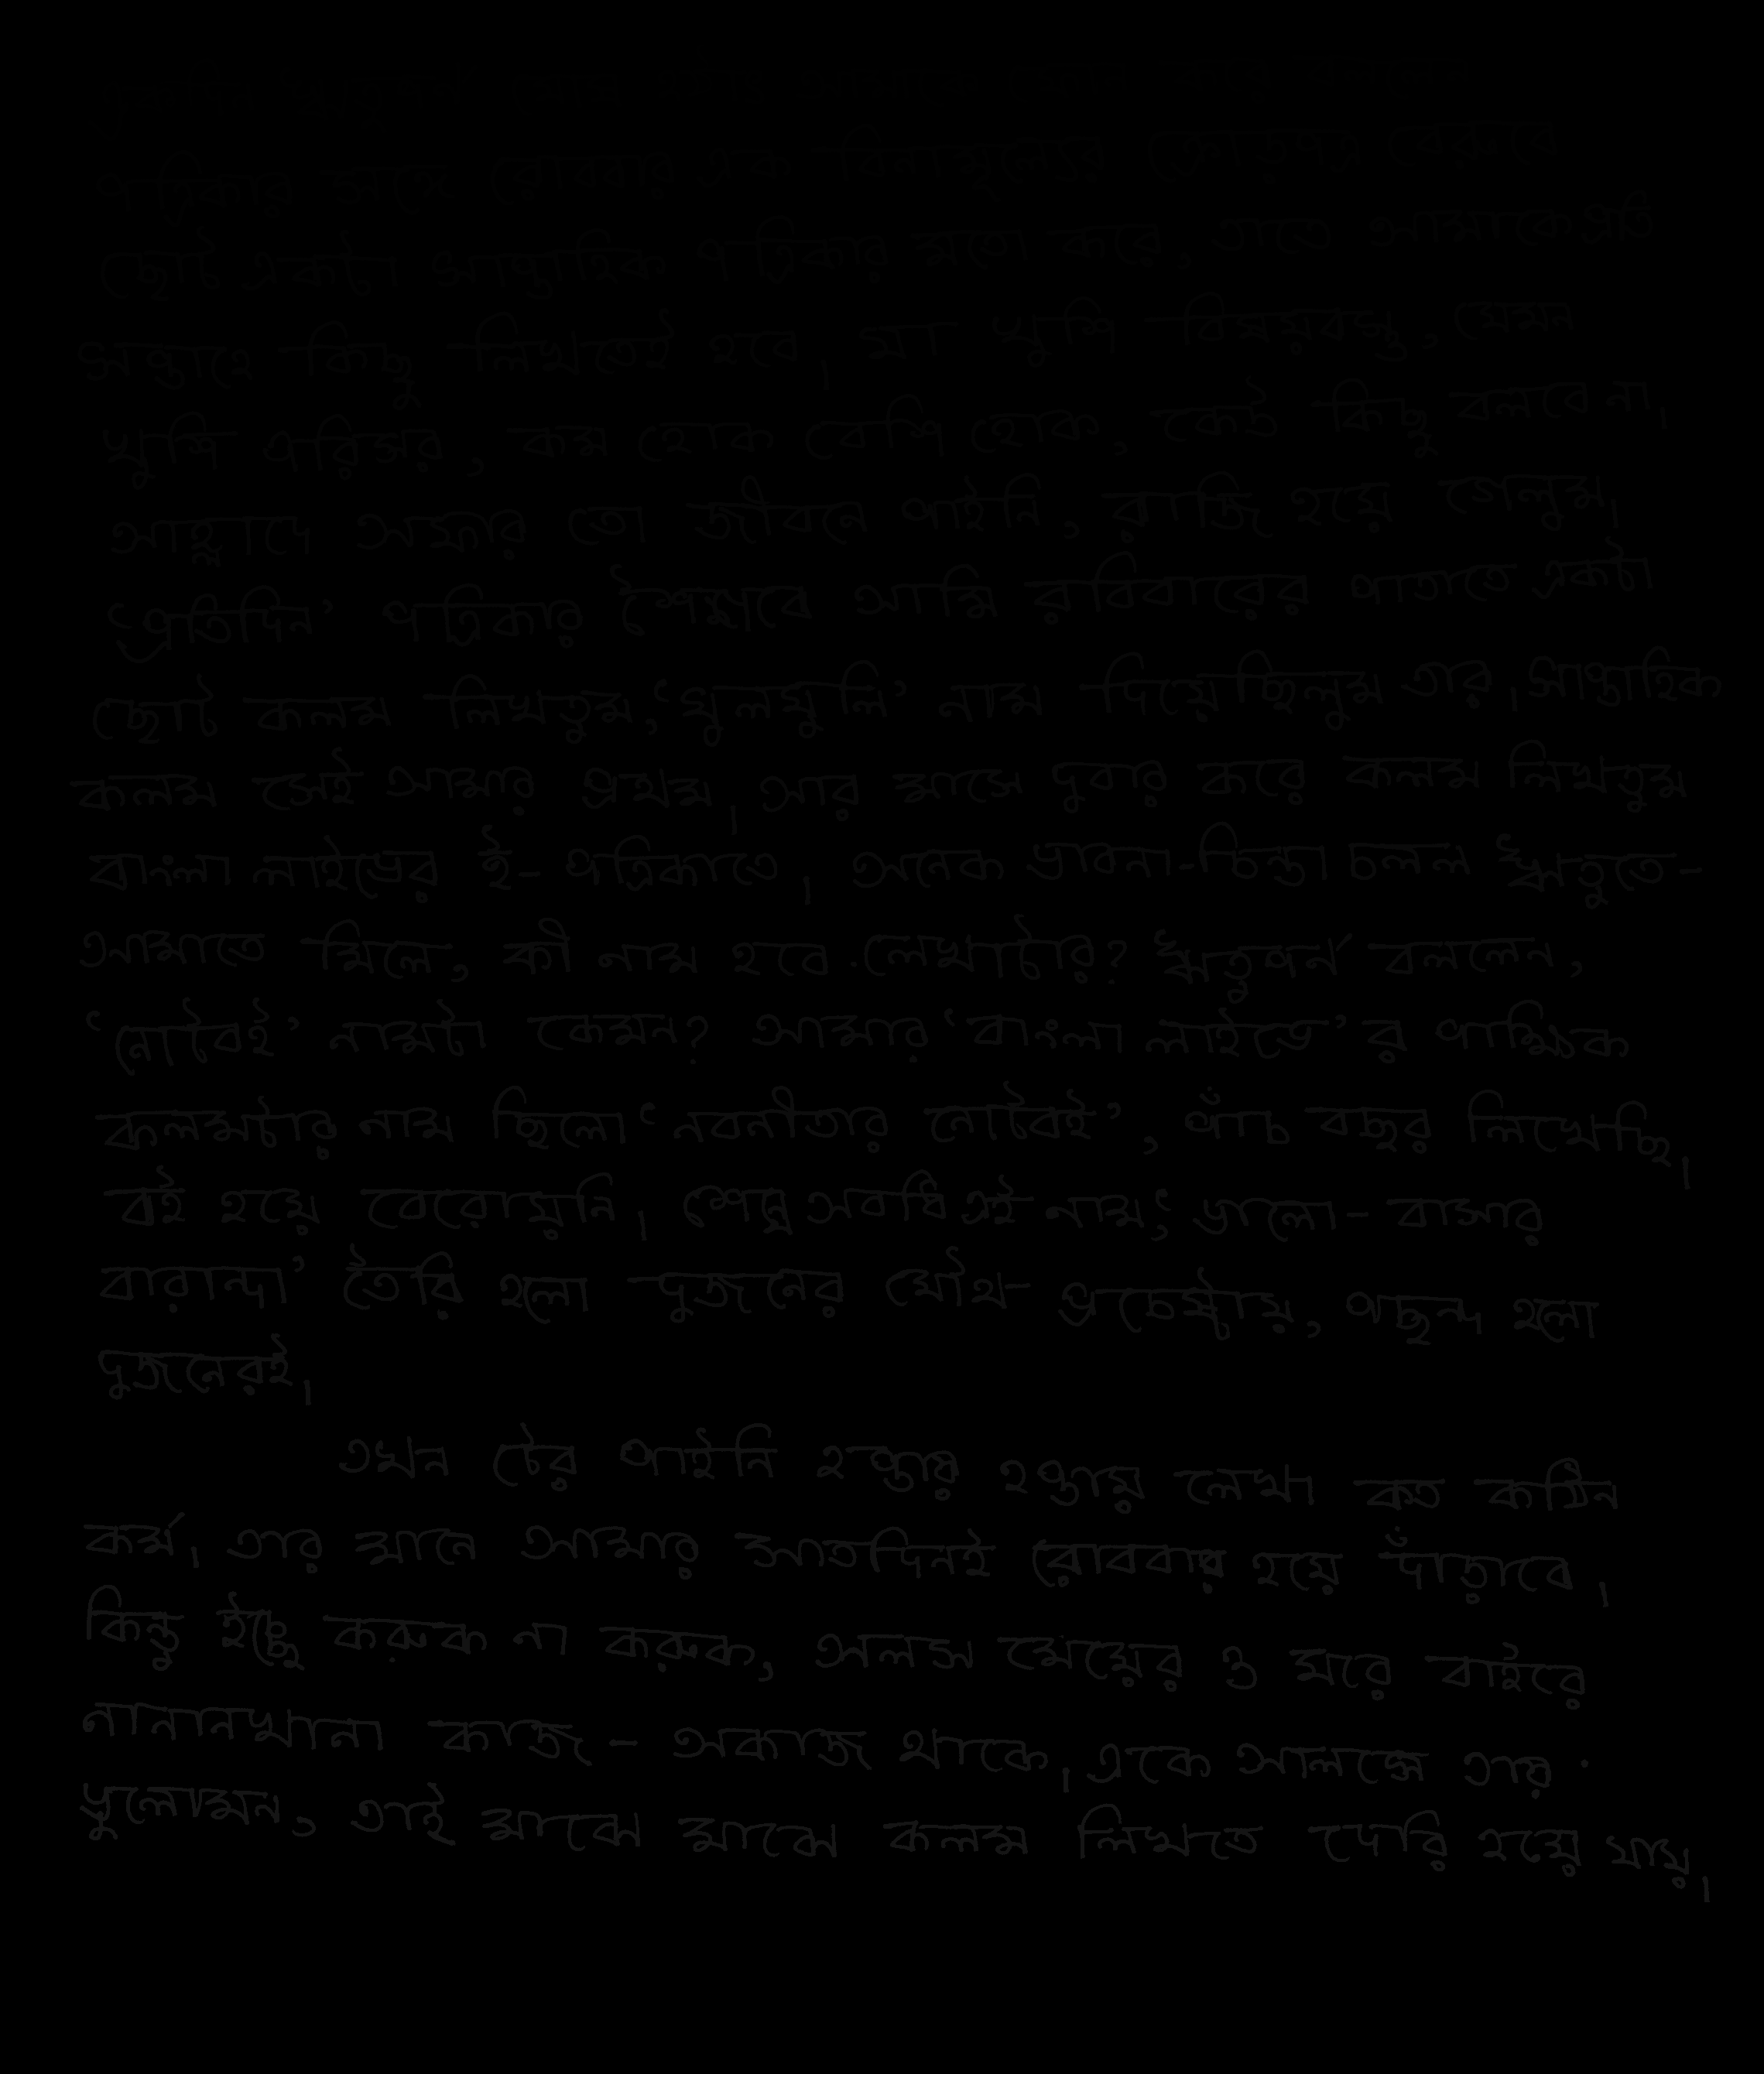 পত্রিকার সঙ্গে রোববার এক বিনামূল্যের ক্রোড়পত্র বেরুবে
ছোট একটা সাপ্তাহিক পত্রিকার মতো করে, তাতে আমাকে প্রতি
সপ্তাহে কিছু লিখতেই হবে। যা খুশি বিষয়বস্তু, যেমন
খুশি পরিসর, কম হোক বেশি হোক, কেউ কিছু বলবে না।
আহ্লাদে অক্ষর তো জীবনে পাইনি, রাজি হয়ে গেলুম।
'প্রতিদিন' পত্রিকার শৈশবে আমি রবিবারের পাতাতে একটা
ছোট কলম লিখতুম, 'ঘুলঘুলি' নাম দিয়েছিলুম তার। সাপ্তাহিক
কলম সেই আমার প্রথম। আর মাসে দুবার করে কলম লিখতুম
বাংলা লাইভের ই- পত্রিকাতে। অনেক ভাবনা-চিন্তা চলল ঋতুতে-
আমাতে মিলে, কী নাম হবে লেখাটার? ঋতুপর্ণ বললেন,
'নোটবই' নামটা কেমন? আমার 'বাংলা লাইভে'র পাক্ষিক
কলমটার নাম ছিলো 'নবনীতার নোটবই', পাঁচ বছর লিখেছি।
বই হয়ে বেরোয়নি। শেষ অবধি এই নাম, 'ভালো-বাসার
বারান্দা' তৈরি হলো দুজনের যৌথ প্রচেষ্টায়, পছন্দ হলো
দুজনেরই।
তখন টের পাইনি হপ্তায় হপ্তায় লেখা কত কঠিন
কর্ম। তার মানে আমার সাতদিনই রোববার হয়ে দাঁড়াবে।
কিন্তু ইচ্ছে করুক না করুক, অলস মেয়ের ও ঘরে বাইরে
নানানখানা কাজ - অকাজ থাকে। একে আলসে তায়
ভুলোমন, তাই মাঝে মাঝে কলম লিখতে দেরি হয়ে যায়।